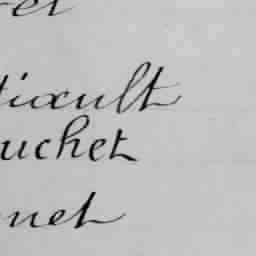 et
iault
uchet
net